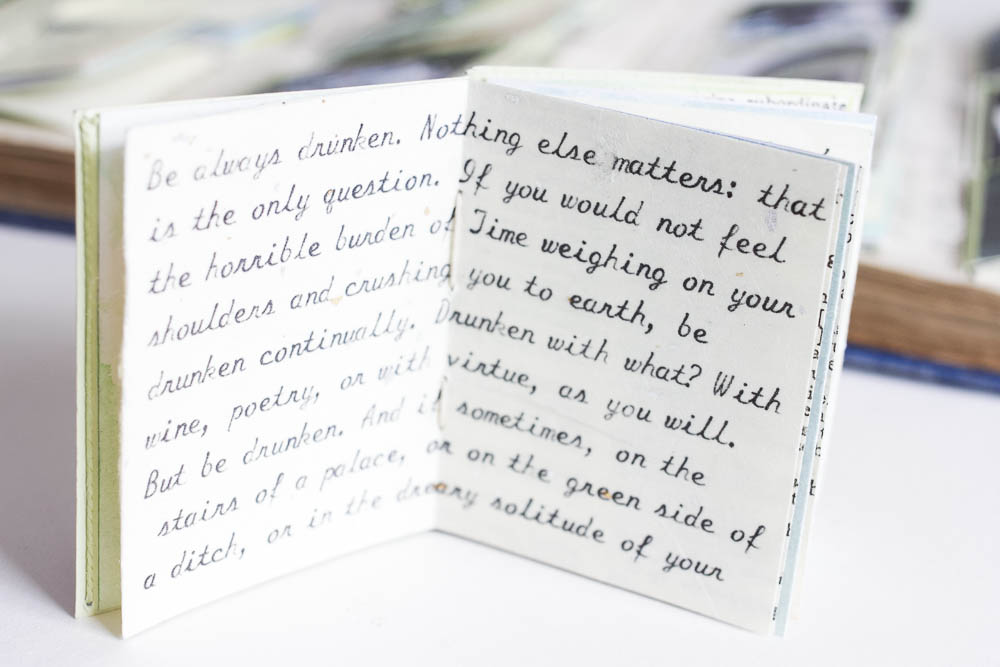 subordinate
Be always drunken. Nothing else matters: that
is the only question. If you would not feel
the horrible burden of Time weighing on your
shoulders and crushing you to earth, be
drunken continually. Drunken with what? With
wine, poetry, or with virtue, as you will.
But be drunken. And if sometimes, on the
stairs of a palace, or on the green side of
a ditch, or in the dreary solitude of your